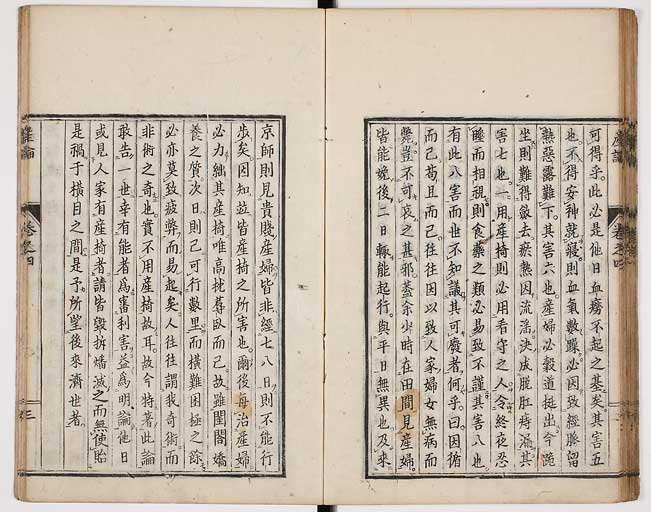 可得乎。此必是他日血癆不起之基矣。其害五
也。不得安神就寢。則血氣數躁。必因致經脈留
熱。惡露難下。其害六也。產婦必穀道挺出。今詭
坐則難得斂去。瘀熱因流蕩。決成脫肛痔漏。其
害七也。一用產掎。則必用看守之人。令終夜忍
睡而相視。則食藥之類。必易致不謹。其害八也。
有此八害。而世不知議。其可廢者何乎。曰因循
而已。苟且而已。往往因以致人家婦女無病而
斃。豈不可哀之甚邪。蓋余少時在田間。見產婦
皆能娩後二日。輒能起行。與平日無異也。及來
京師。則見貴賤產婦。皆非經七八日。則不能行
步矣。因知竝皆產掎之所害也。爾後每治產婦。
必力絀其產掎。唯高枕蓐臥而已。故雖閨閤嬌
養之質。次日則已可行數里。而橫難困極之際。
必亦莫致疲弊而易起矣。人往往謂我奇術。而
非術之奇也。實不用產掎故耳。故今特著此論。
敢告一世。幸有能者為審利害。益為明論。他日
或見人家有產掎者。請皆毀拆燔滅之。而無使貽
是禍于橫目之間。是予所望後來濟世者。
產論
卷之四
三